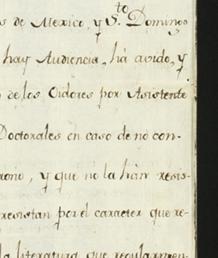 s de Mexico, y Sto. Domingo
hay Audiencia, ha avido, y
de los Oidores por Asistente
Doctorales en caso de nó con-
, y que no la hán resis-
resistan por el caracter que re-
la literatura que regularmen-